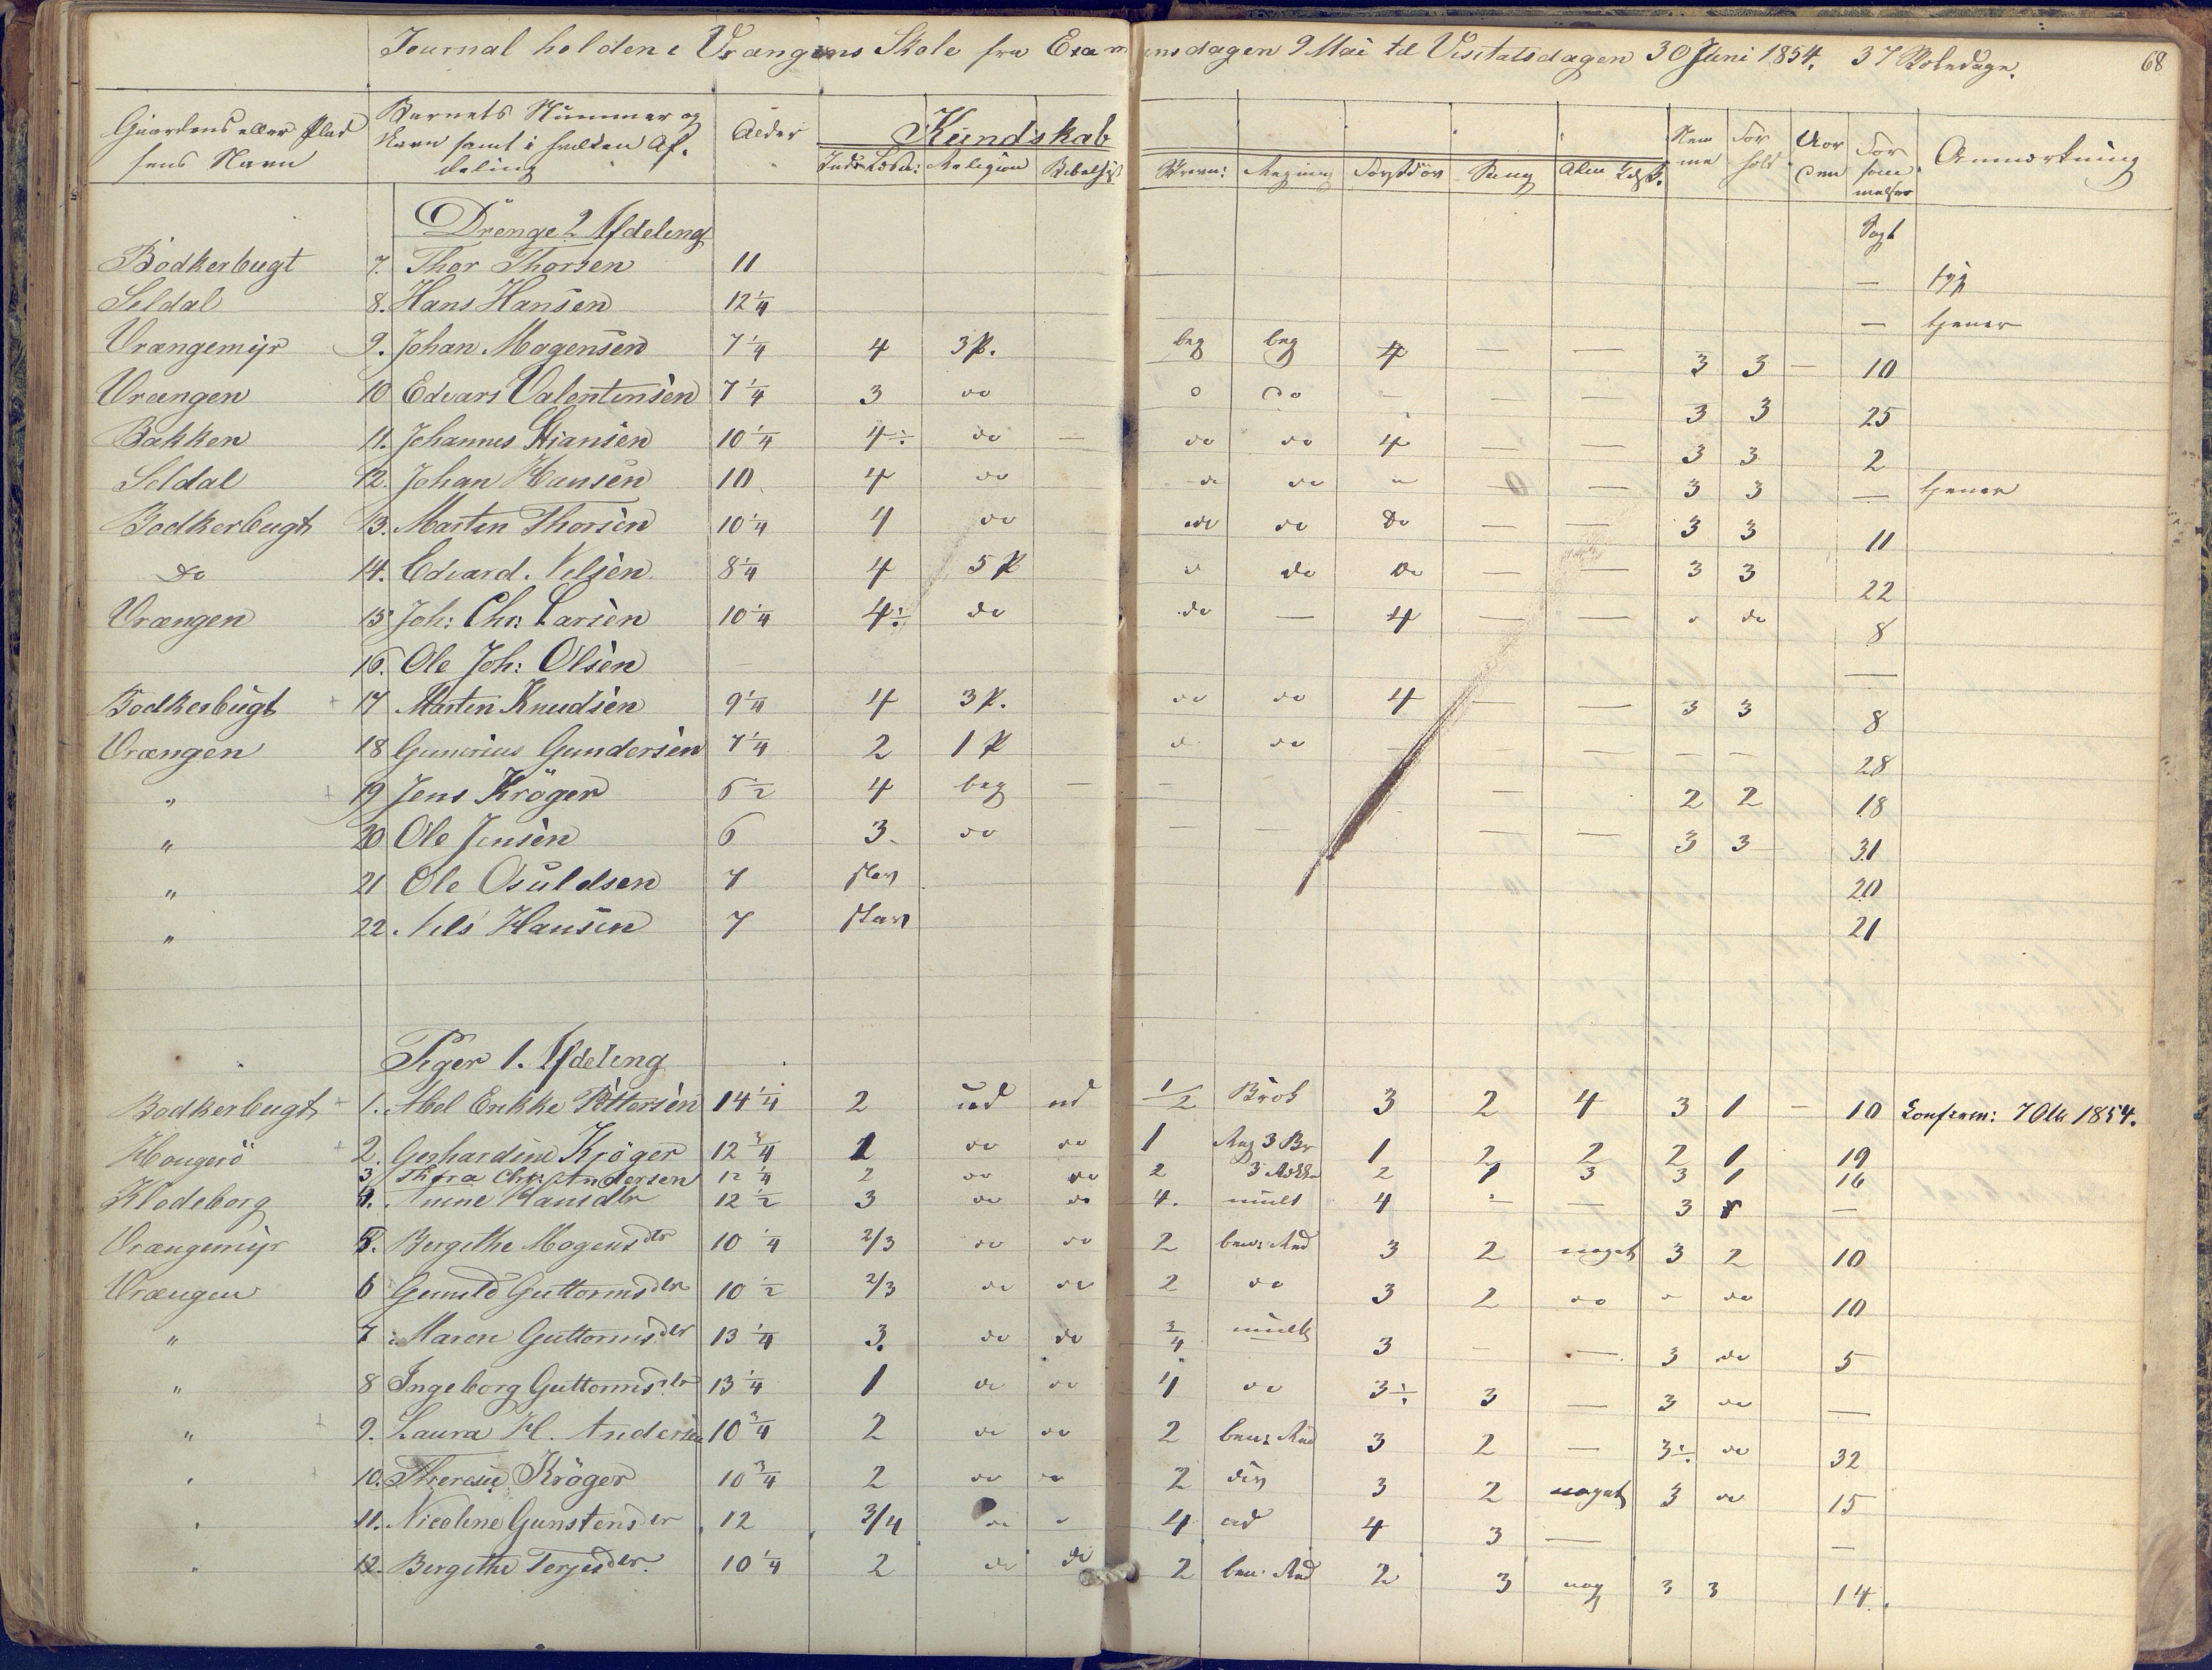 Journal holden i Vrangens Skole fra Examensdagen 9 Mai til Visitatsdagen 30 Juni 1854. 37 Skoledage. 68
Gaardens eller Pladsens Navn | Barnets Nummer og Navn samt i hvilken Afdeling | Alder | Kundskab | Nemme | Forhold | Orden | Forsømmelser | Anmærkning
Religion | Bibelhist | Skrivn: | Regning | Sang
Drenge 2 Afdeling
Sagt
Bödkerbugt 7. Thor Thorsen 11 —
Seldal 8. Hans Hansen 12 1/4 — tjener
Vrangemyr 9. Johan Mogensen 7 1/4 4 3 P. beg beg 4 — — 3 3 — 10
Vrangen 10 Edvars Valentinsen 7 1/4 3 do do do — — — 3 3 25
Bakken 11. Johannes Stiansen 10 1/4 4÷ do — do do 4 — — 3 3 2
Seldal 12. Johan Hansen 10 4 do do do — — 3 3 — tjener
Bodkerbugt 13. Martin Thorsen 10 1/4 4 do do do Do — — 3 3 11
Do 14. Edvard Nelsen 8 1/4 4 5 P do do Do — — 3 3 22
Vrangen 15 Joh: Chr: Larsen 10 1/4 4÷ do do — 4 — — do do 8
16. Ole Joh: Olsen — —
Bödkerbugt 17 Martin Knudsen 9 1/4 4 3 P. do do 4 — — 3 3 8
Vrangen 18 Gunerius Gundersen 7 1/4 2 1 P do do — — — — — 28
" 19 Jens Kröger 6 1/2 4 beg — — — 2 2 18
" 20 Ole Jensen 6 3 do — — — — 3 3 31
" 21 Ole Osuldsen 7 stav 20
" 22. Nels Hansen 7 stav 21
Piger 1. Afdeling
Bodkerbugt 1. Abel Erikke Pettersen 14 1/4 2 ud ud 1/2 Brök 3 2 4 3 1 — 10 Konfirm: 7 Okt 1854.
Hougerö 2. Gerhardine Kröger 12 3/4 1 do do 1 Reg 3 Br 1 2 2 2 1 19
3. Thora Chr: Andersen 12 1/4 2 do do 2 2 1 3 3 1 16
Klodeborg 4. Anne Hansdtr 12 1/2 3 do do 4. mult 4 — — 3 —
Vrangemyr 5. Bergithe Mogensdtr 10 1/4 2/3 do do 2 ben: Red 3 2 noget 3 2 10
Vrangen 6 Gunild Guttormsdtr 10 1/2 2/3 do do 2 do 3 2 do do do 10
" 7 Maren Guttormsdtr 13 1/4 3. do do 3/4 mult 3 — — 3 do 5
" 8 Ingeborg Guttormsdtr 13 1/4 1 do do 4 do 3÷ 3 — 3 do —
" 9. Laura H. Andersen 10 3/4 2 do do 2 ben: Red 3 2 — 3÷ do 32
" 10. Therese Kröger 10 3/4 2 do do 2 div 3 2 noget 3 do 15
" 11. Nicoline Gunstensdtr 12 3/4 do do 4 ad 4 3 — —
" 12. Bergithe Terjesdtr. 10 1/4 2 do do 2 ben: Red 2 3 nog 3 3 14.